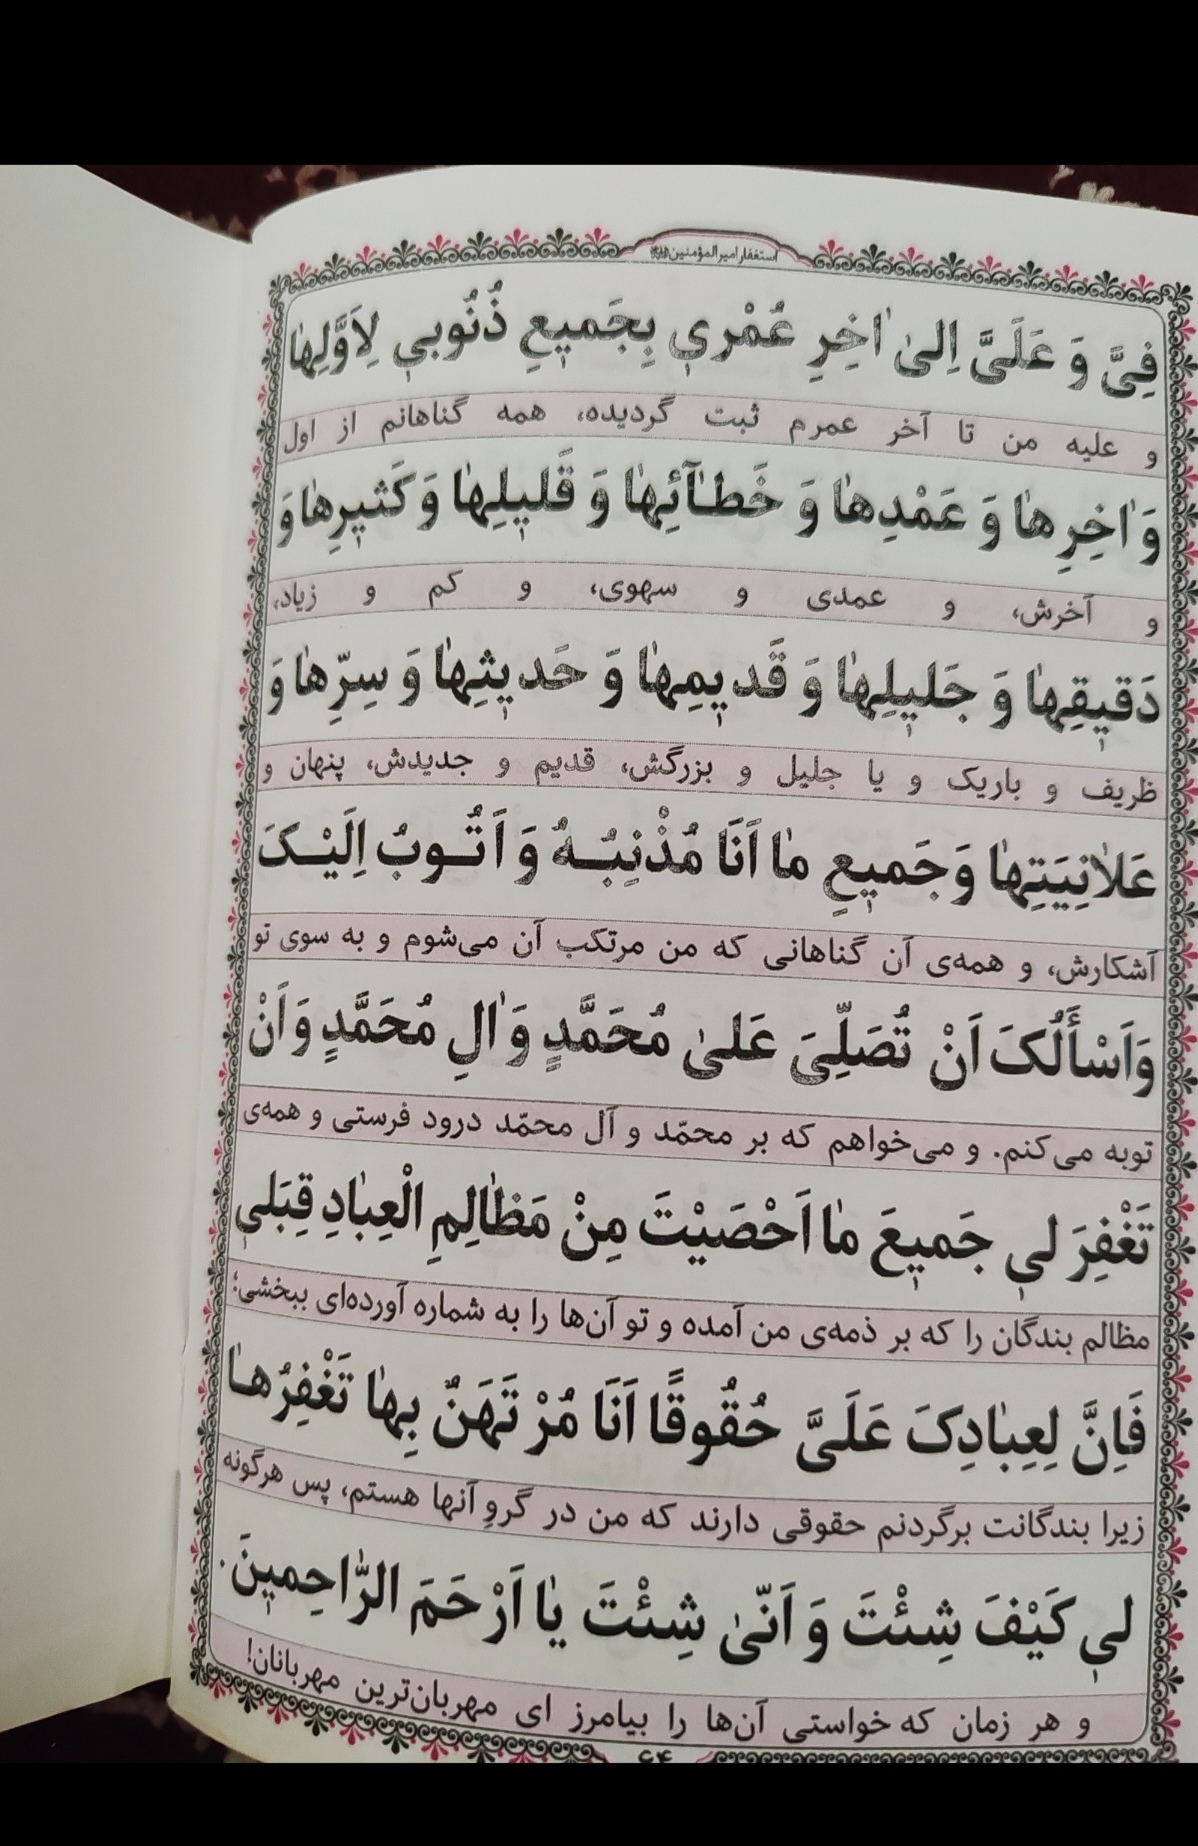 استغفار امیرالمؤمنین
فِیَّ وَ عَلَیَّ اِلیٰ اٰخِرِ عُمْری بِجَمیعِ ذُنُوبی لِاَوَّلِهٰا
و علیه من تا آخر عمرم ثبت گردیده، همه گناهانم از اول
وَ اٰخِرِهٰا وَ عَمْدِهٰا وَ خَطٰآئِهٰا وَ قَلیلِهٰا وَ کَثیرِهٰا وَ
و آخرش، و عمدی و سهوی، و کم و زیاد،
دَقیقِهٰا وَ جَلیلِهٰا وَ قَدیمِهٰا وَ حَدیثِهٰا وَ سِرِّهٰا وَ
ظریف و باریک و یا جلیل و بزرگش، قدیم و جدیدش، پنهان و
عَلاٰنِیَتِهٰا وَ جَمیعِ مٰا اَنَا مُذْنِبُـهُ وَ اَتُـوبُ اِلَیْـکَ
آشکارش، و همه‌ی آن گناهانی که من مرتکب آن می‌شوم و به سوی تو
وَاَسْأَلُکَ اَنْ تُصَلِّیَ عَلیٰ مُحَمَّدٍ وَ اٰلِ مُحَمَّدٍ وَ اَنْ
توبه می‌کنم. و می‌خواهم که بر محمّد و آل محمّد درود فرستی و همه‌ی
تَغْفِرَ لی جَمیعَ مٰا اَحْصَیْتَ مِنْ مَظٰالِمِ الْعِبٰادِ قِبَلی
مظالم بندگان را که بر ذمه‌ی من آمده و تو آن‌ها را به شماره آورده‌ای ببخشی؛
فَاِنَّ لِعِبٰادِکَ عَلَیَّ حُقُوقًا اَنَا مُرْتَهَنٌ بِهٰا تَغْفِرُهٰا
زیرا بندگانت برگردنم حقوقی دارند که من در گروِ آنها هستم، پس هرگونه
لی کَیْفَ شِئْتَ وَ اَنّیٰ شِئْتَ یٰا اَرْحَمَ الرّٰاحِمینَ.
و هر زمان که خواستی آن‌ها را بیامرز ای مهربان‌ترین مهربانان!
۶۴